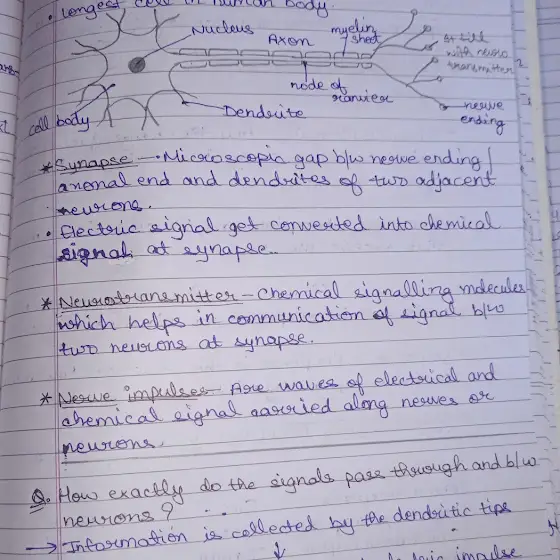 • Longest cell in human body.
Nucleus
Axon
myelin
sheet
filled
with neuro
transmitter
node of
ranvier
Dendrite
nerve
ending
cell body
* Synapse - Microscopic gap b/w nerve ending/
axonal end and dendrites of two adjacent
neurons.
• Electric signal get converted into chemical
signal at synapse..
* Neurotransmitter - Chemical signalling molecules
which helps in communication of signal b/w
two neurons at synapse.
* Nerve impulses - Are waves of electrical and
chemical signal carried along nerves or
neurons.
Q. How exactly do the signals pass through and b/w
neurons?
→ Information is collected by the dendritic tips
↓
impulse